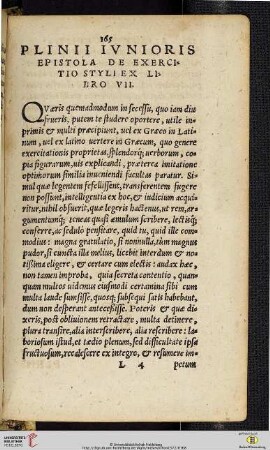 165
PLINII IVNIORIS
EPISTOLA DE EXERCI-
TIO STYLI EX LI-
BRO VII.
QVæris quemadmodum in secessu, quo iam diu
frueris, putem te studere oportere, utile in-
primis & multi præcipiunt, uel ex Græco in Lati-
num, uel ex latino uertere in Græcum, quo genere
exercitationis proprietas, splendorq; uerborum, co-
pia figurarum, uis explicandi, præterea imitatione
optimorum similia inueniendi facultas paratur. Si-
mul quæ legentem fefellissent, transferentem fugere
non possunt, intelligentia ex hoc, & iudicium acqui-
ritur, nihil obfuerit, quæ legeris hactenus, ut rem, ar-
gumentumq; teneas quasi æmulum scribere, lectisq;
conferre, ac sedulo pensitare, quid tu, quid ille com-
modius: magna gratulatio, si nonnulla, tùm magnus
pudor, si cuncta illa melius, licebit interdum & no-
tissima eligere, & certare cum electis: audax hæc,
non tamen improba, quia secreta contentio, quan-
quam multos uidemus eiusmodi certamina sibi cum
multa laude sumsisse, quosq; subsequi satis habebant,
dum non desperant antecessisse. Poteris & quæ di-
xeris, post obliuionem retractare, multa detinere,
plura transire, alia interscribere, alia rescribere: la-
boriosum istud, et tædio plenum, sed difficultate ipsa
fructuosum, recalescere ex integro, & resumere im-
L 4 petum
© Universitätsbibliothek Heidelberg